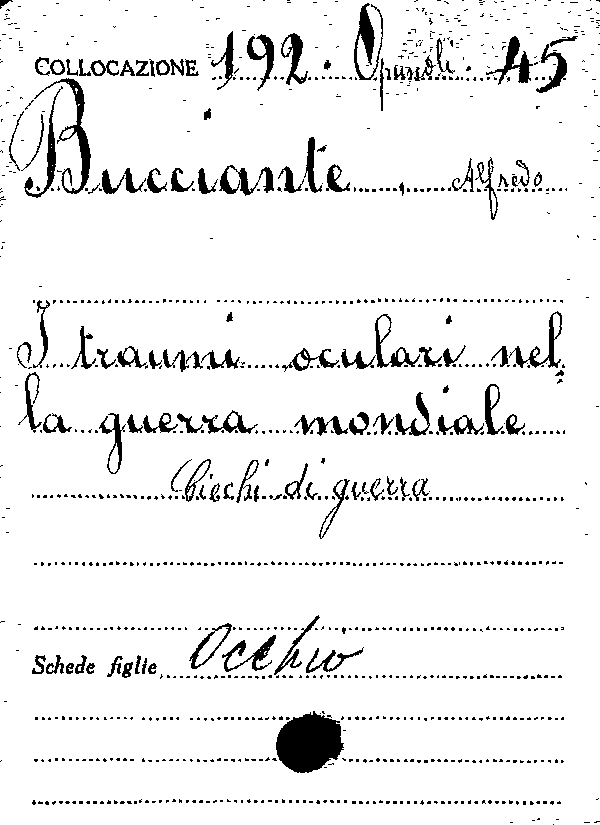 COLLOCAZIONE 192. Opuscoli. 45
Bucciante, Alfredo
I traumi oculari nel-
la guerra mondiale
Ciechi di guerra
Schede figlie Occhio